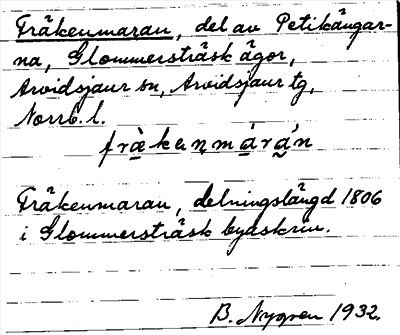 Fräkenmaran, del av Petikångar-
na, Glommersträsk ägor,
Arvidsjaur sn, Arvidsjaur tg,
Norrb. l.
frä̀kenmáràn
Fräkenmaran, delningslängd 1806
i Glommersträsk byaskrin.
B. Nygren 1932.